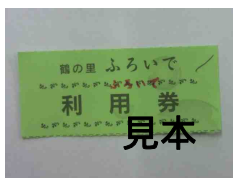 鶴の里 ふろいで
ふろいで
利用券
見本